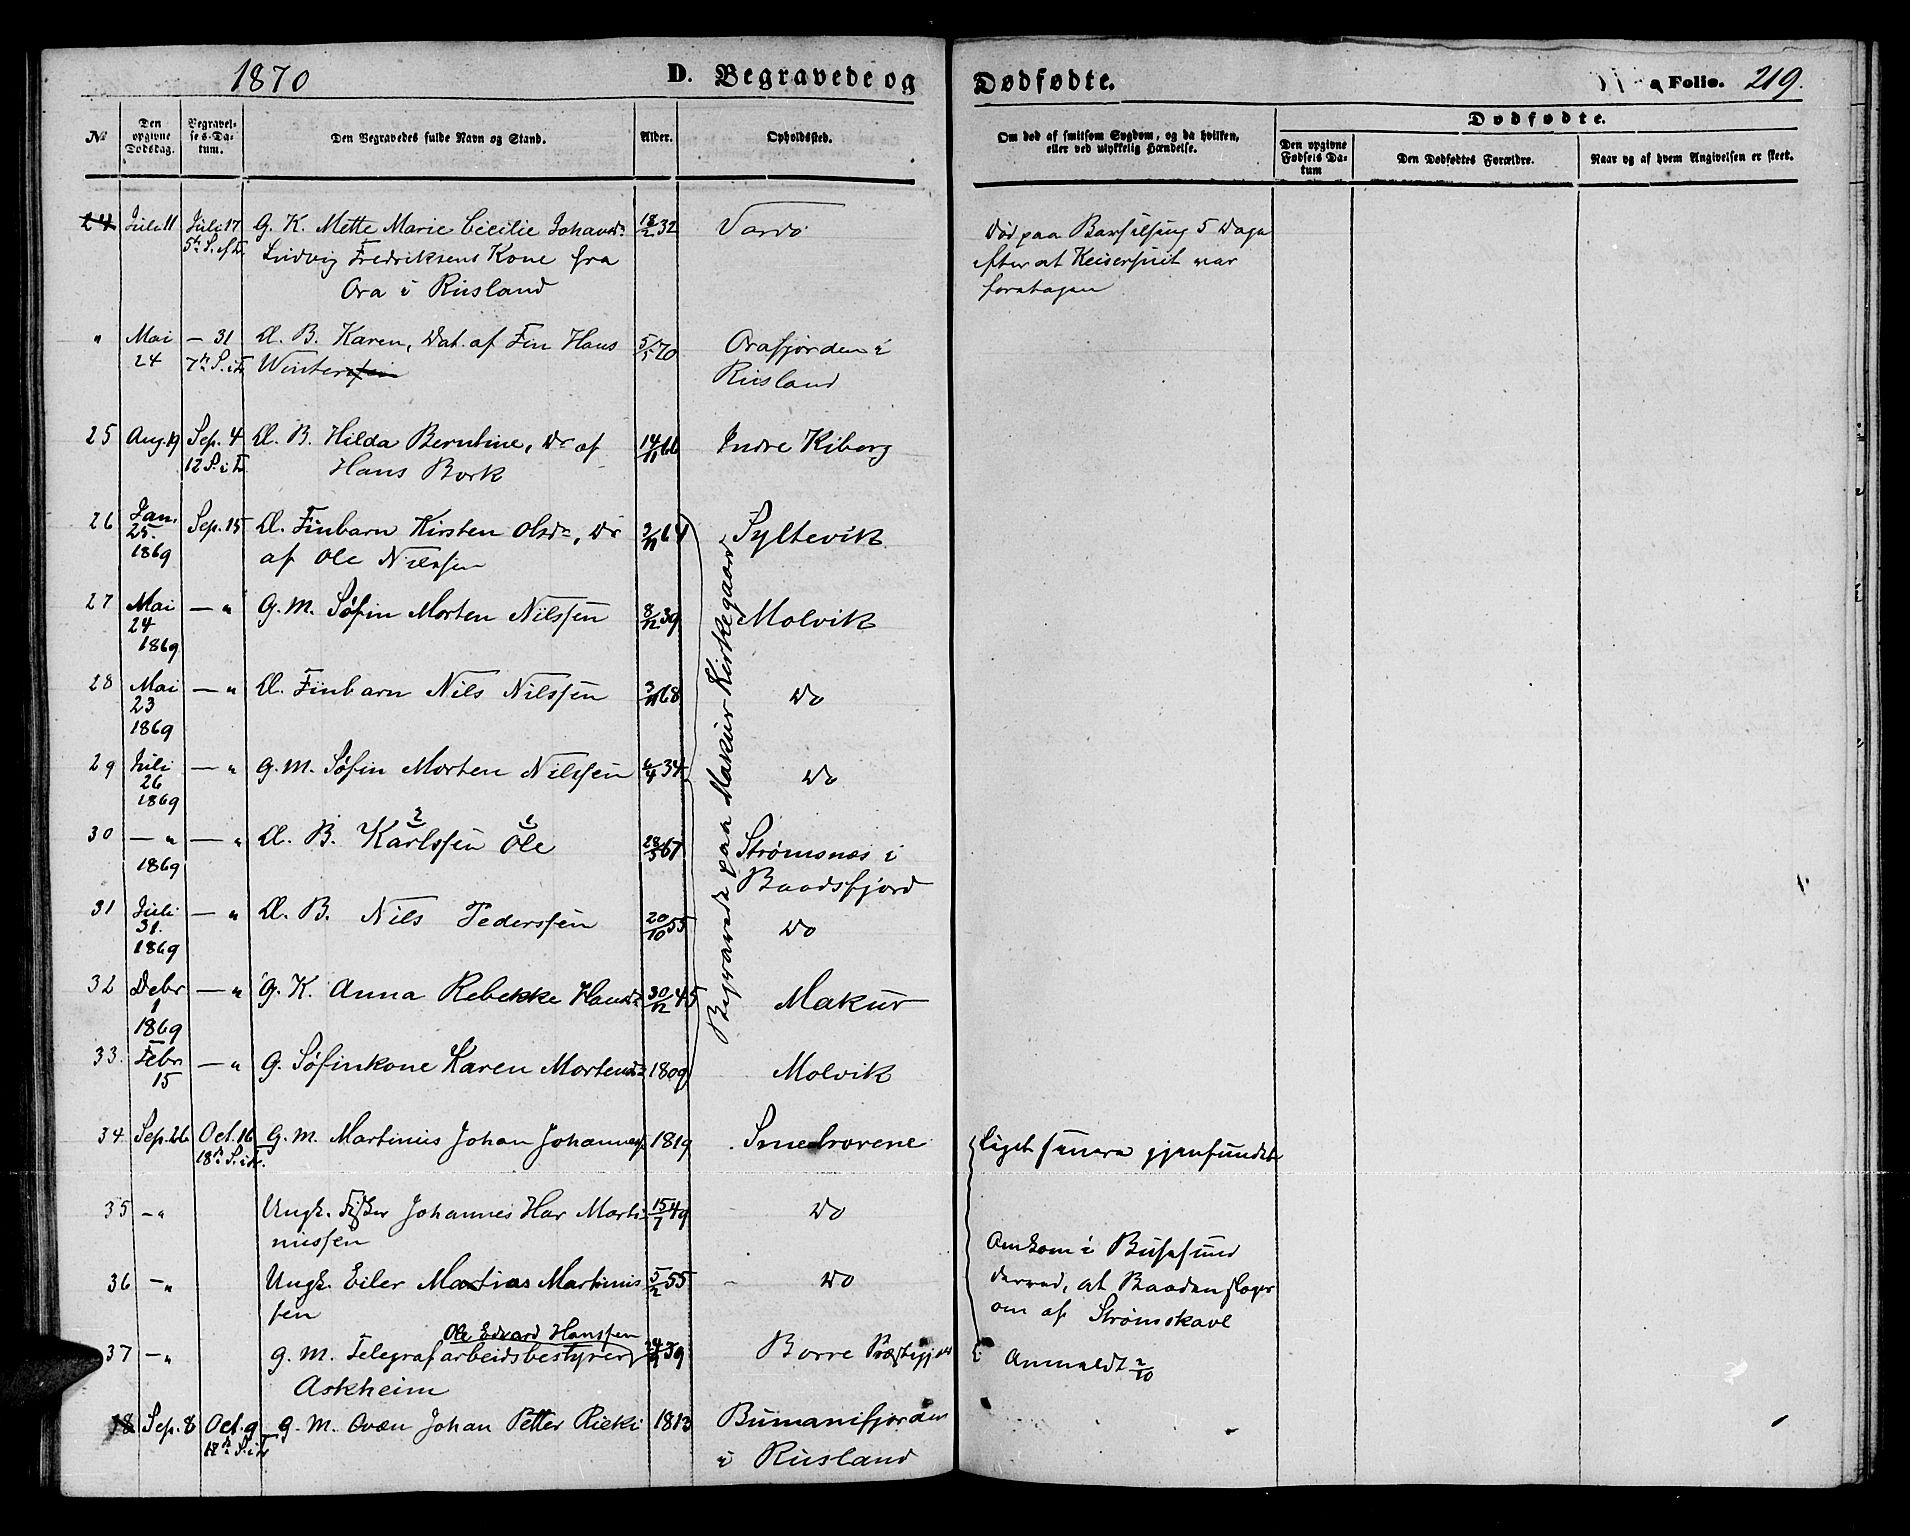 1870
D. Begravede og
Dødfødte.
Folio. 219.
No
Den opgivne Dødsdag.
Begravelses-Datum.
Den Begravedes fulde Navn og Stand.
Alder.
Opholdssted.
Om død af smitsom Sygdom, og da hvilken, eller ved ulykkelig Hændelse.
Dødfødte.
Den opgivne Fødsels Datum
Den Dødfødtes Forældre.
Naar og af hvem Angivelsen er skeet.
24 Juli 11 Juli 17 G. K. Mette Marie Cicilie Johansd. 18/2 32 Vardø Død paa Barselseng 5 Dage
5te S. ef. Tr. Ludvig Fredriksens Kone fra efter at Keisersnit var
Ora i Rusland foretagen
" Mai — 31 Æ. B. Karen, Dat. af Fin Hans 5/5 70 Orafjorden i
24 7de S. i Tr. Wintersen Rusland
25 Aug. 19 Sep. 4 Æ. B. Hilda Berntine, Dr af 14/11 66 Indre Kiberg
12 S. i Tr. Hans Bork
26 Jan. Sep. 15 Æ. Finbarn Kirsten Olsdr, Dr 3/11 64 Syltevik
25. af Ole Nilssen
1869
Begravede paa Makur Kirkegaard
27 Mai — " G. M. Søfin Morten Nilssen 8/12 39 Molvik
24
1869
28 Mai — " Æ. Finbarn Nils Nilssen 3/11 68 Do
23
1869
29 Juli — " G. M. Søfin Morten Nilssen 6/4 34 Do
26
1869
30 — " — " Æ. B. Karlssen Ole 28/5 67 Strømsnæs i
1869 Baadsfjord
31 Juli — " Æ. B. Nils Pederssen 20/10 55 Do
31.
1869
32 Debr — " G. K. Anna Rebekke Hansd. 30/12 45 Makur
1
1869
33. Febr — " G. Søfinkone Karen Mortensd. 1809 Molvik
15
34 Sep. 26 Oct. 16 G. M. Martinus Johan Johannes. 1819 Smedvorene Liget senere gjenfundet
18de S. i Tr.
35 — " Ungk. Fisker Johannes Har Marti- 15/7 49 Do
nussen Omkom i Bussesund
36 — " Ungk. Eiler Mathias Martinus 5/2 55 Do derved, at Baaden sloges
sen om af Strømskavl
Ole Edvard Hanssen
37 — " G. M. Telegrafarbeidsbestyrer 39 Borre Præstegjæld Anmeldt 2/10
Askheim
38 Sep. 8 Oct. 9 G. M. Qvæn Johan Petter Rieki 1813 Bumanifjorden
i Rusland